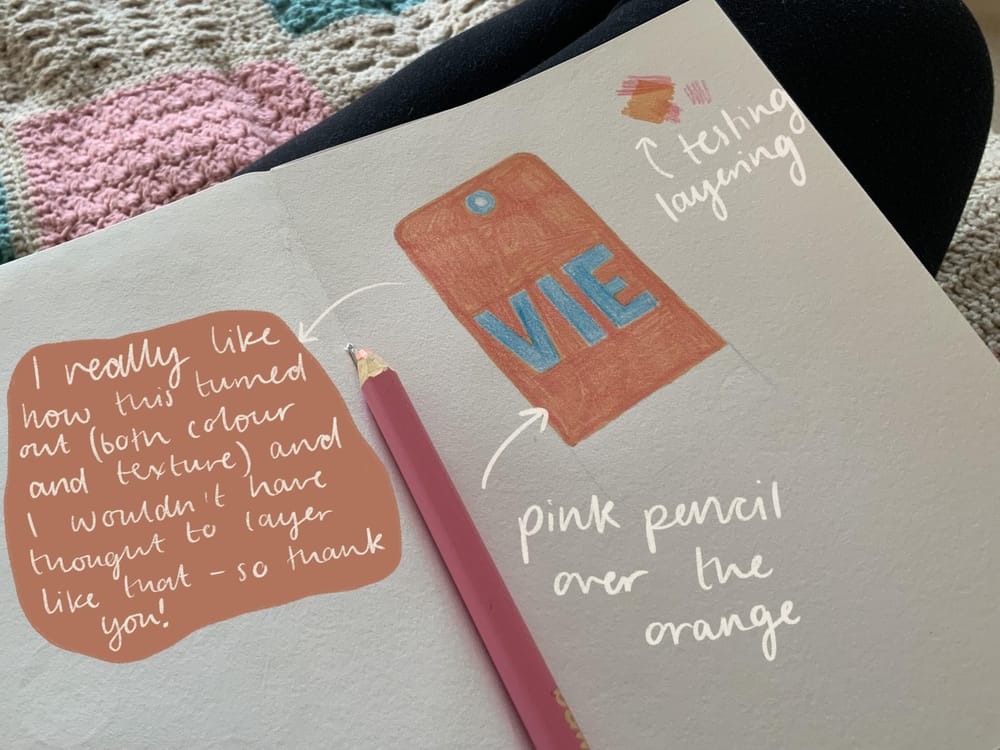 testing
layering
VIE
I really like
how this turned
out (both colour
and texture) and
I wouldn't have
thought to layer
like that - so thank
you!
pink pencil
over the
orange